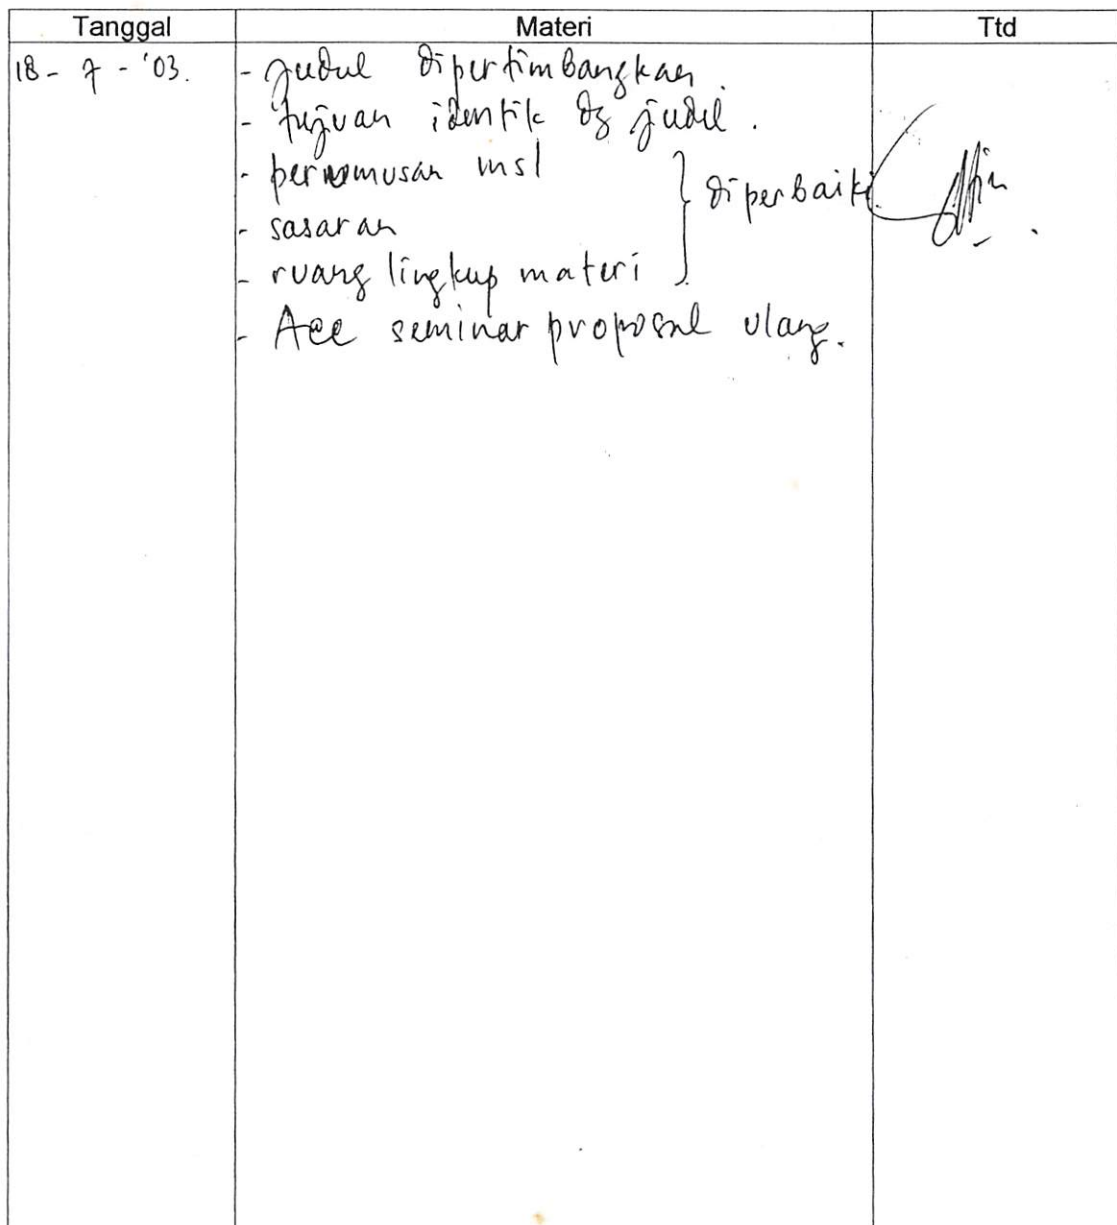 Tanggal Materi Ttd
18 - 7 - '03.
- judul dipertimbangkan.
- tujuan identik dg judul.
- perumusan msl
- sasaran
- ruang lingkup materi
} diperbaiki
- Acc seminar proposal ulang.